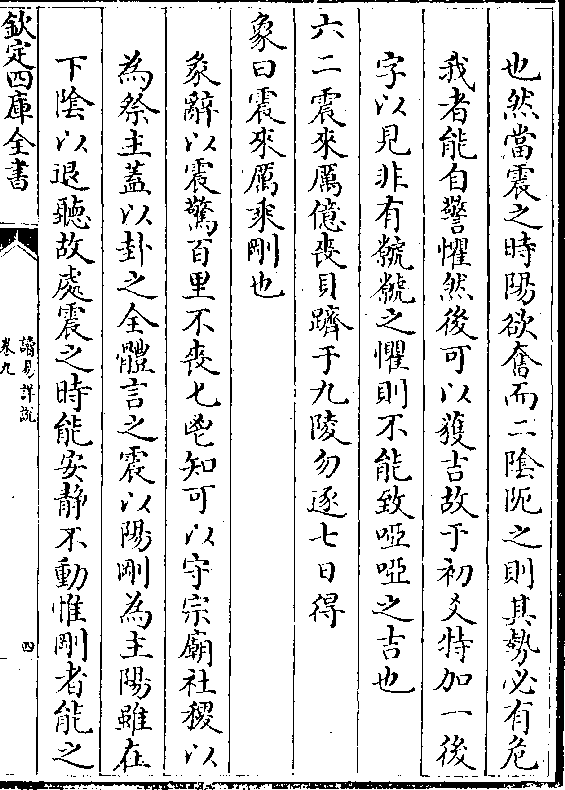 也然當震之時陽欲奮而二陰阨之則其勢必有危
我者能自警懼然後可以獲吉故于初爻特加一後
字以見非有虩虩之懼則不能致啞啞之吉也
六二震來厲億喪貝躋于九陵勿逐七日得
象曰震來厲乘剛也
彖辭以震驚百里不喪匕鬯知可以守宗廟社稷以
為祭主蓋以卦之全體言之震以陽剛為主陽雖在
下陰以退聽故處震之時能安静不動惟剛者能之
欽定四庫全書
讀易詳說
卷九
四